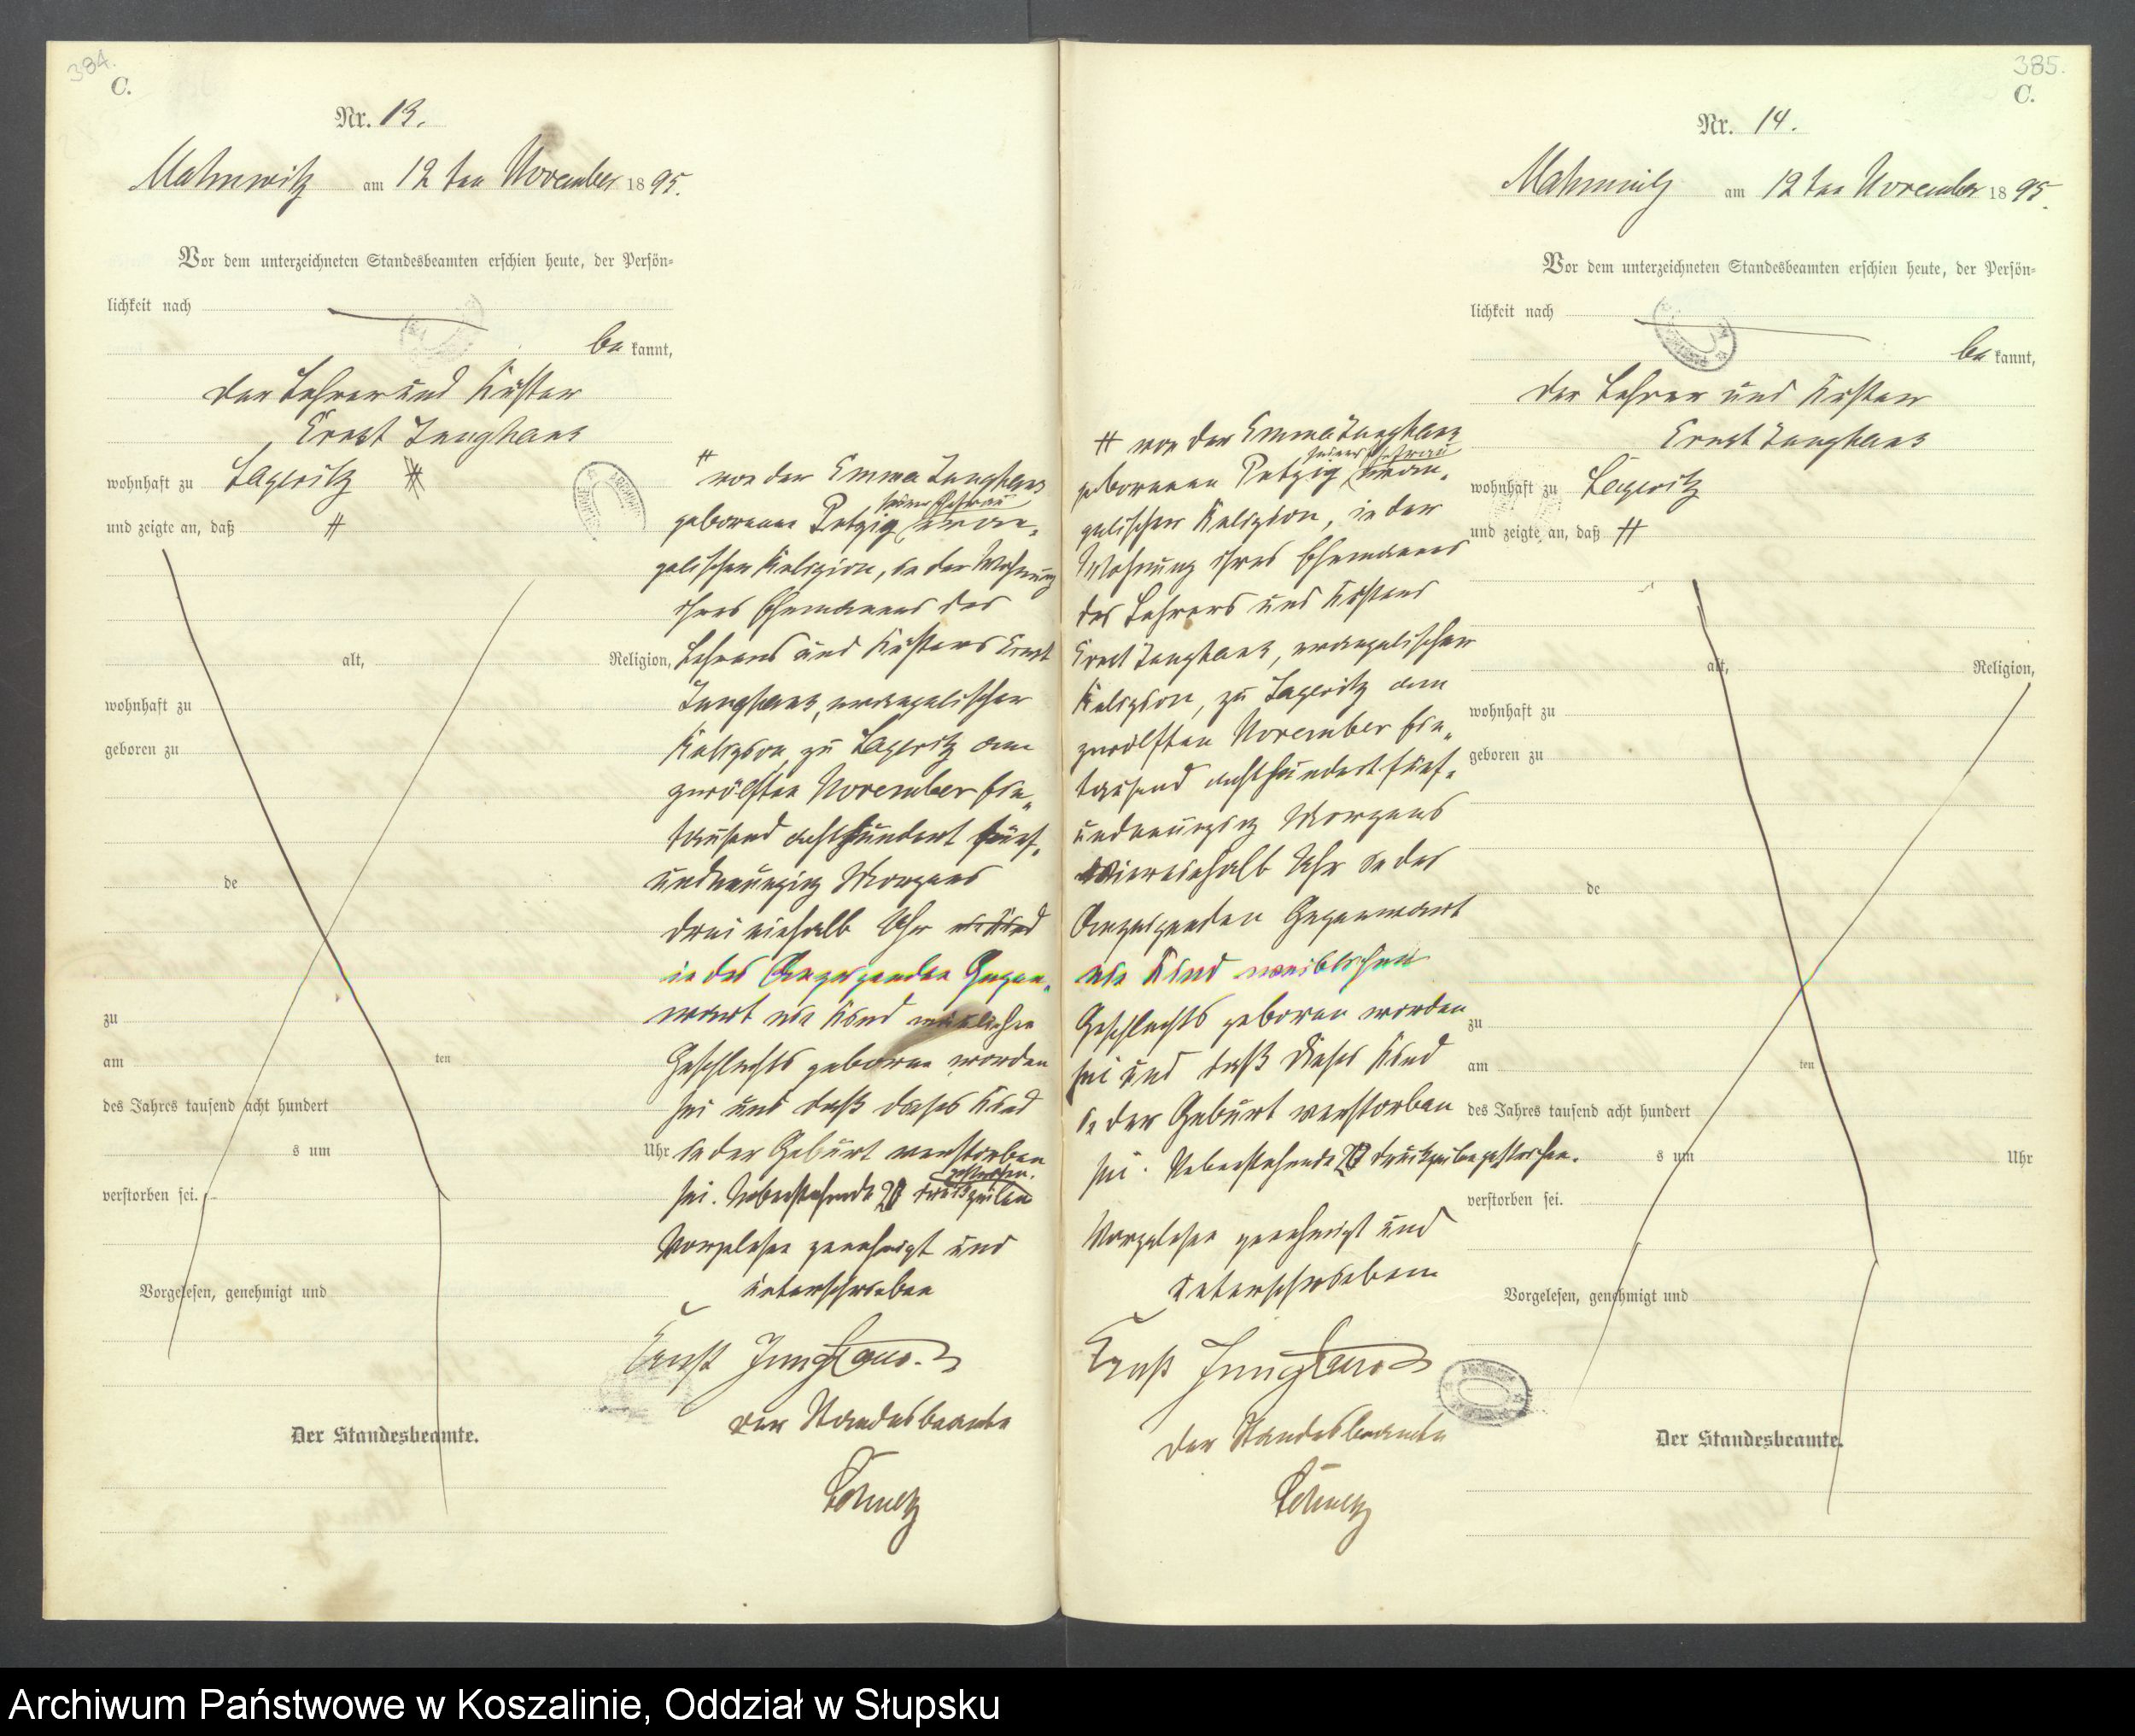 384.
C.
Nr. 13.
Mahnwitz am 12 ten November 1895.
Vor dem unterzeichneten Standesbeamten erschien heute, der Persön-
lichkeit nach
be kannt,
der Lehrer und Küster
Ernst Junghans
wohnhaft zu Lageritz #
und zeigte an, daß #
alt, Religion,
wohnhaft zu
geboren zu
de
zu
am ten
des Jahres tausend acht hundert
s um Uhr
verstorben sei.
Vorgelesen, genehmigt und
Der Standesbeamte.
# von der Emma Junghans
geborenen Petzig seiner Ehefrau evan-
gelischer Religion, in der Wohnung
ihres Ehemannes des
Lehrers und Küsters Ernst
Junghans, evangelischer
Religion, zu Lageritz am
zwölften November Ein-
tausend achthundert fünf-
undneunzig Morgens
drei einhalb Uhr ein Kind
in des Anzeigenden Gegen-
wart ein Kind männlichen
Geschlechts geboren worden
sei und daß dieses Kind
in der Geburt verstorben
sei. Nebenstehende 20 Druckzeilen
gestrichen.
Vorgelesen genehmigt und
unterschrieben
Ernst Junghans.
Der Standesbeamte
385.
C.
Nr. 14.
Mahnwitz am 12 ten November 1895.
Vor dem unterzeichneten Standesbeamten erschien heute, der Persön-
lichkeit nach
be kannt,
der Lehrer und Küster
Ernst Junghans
wohnhaft zu Lageritz
und zeigte an, daß #
alt, Religion,
wohnhaft zu
geboren zu
de
zu
am ten
des Jahres tausend acht hundert
s um Uhr
verstorben sei.
Vorgelesen, genehmigt und
Der Standesbeamte.
# von der Emma Junghans
geborenen Petzig seiner Ehefrau evan-
gelischer Religion, in der
Wohnung ihres Ehemannes
des Lehrers und Küsters
Ernst Junghans, evangelischer
Religion, zu Lageritz am
zwölften November Ein-
tausend achthundert fünf-
undneunzig Morgens
viereinhalb Uhr in des
Anzeigenden Gegenwart
ein Kind weiblichen
Geschlechts geboren worden
sei und daß dieses Kind
in der Geburt verstorben
sei. Nebenstehende 20 Druckzeilen gestrichen.
Vorgelesen genehmigt und
unterschrieben
Ernst Junghans
Der Standesbeamte
Archiwum Państwowe w Koszalinie, Oddział w Słupsku